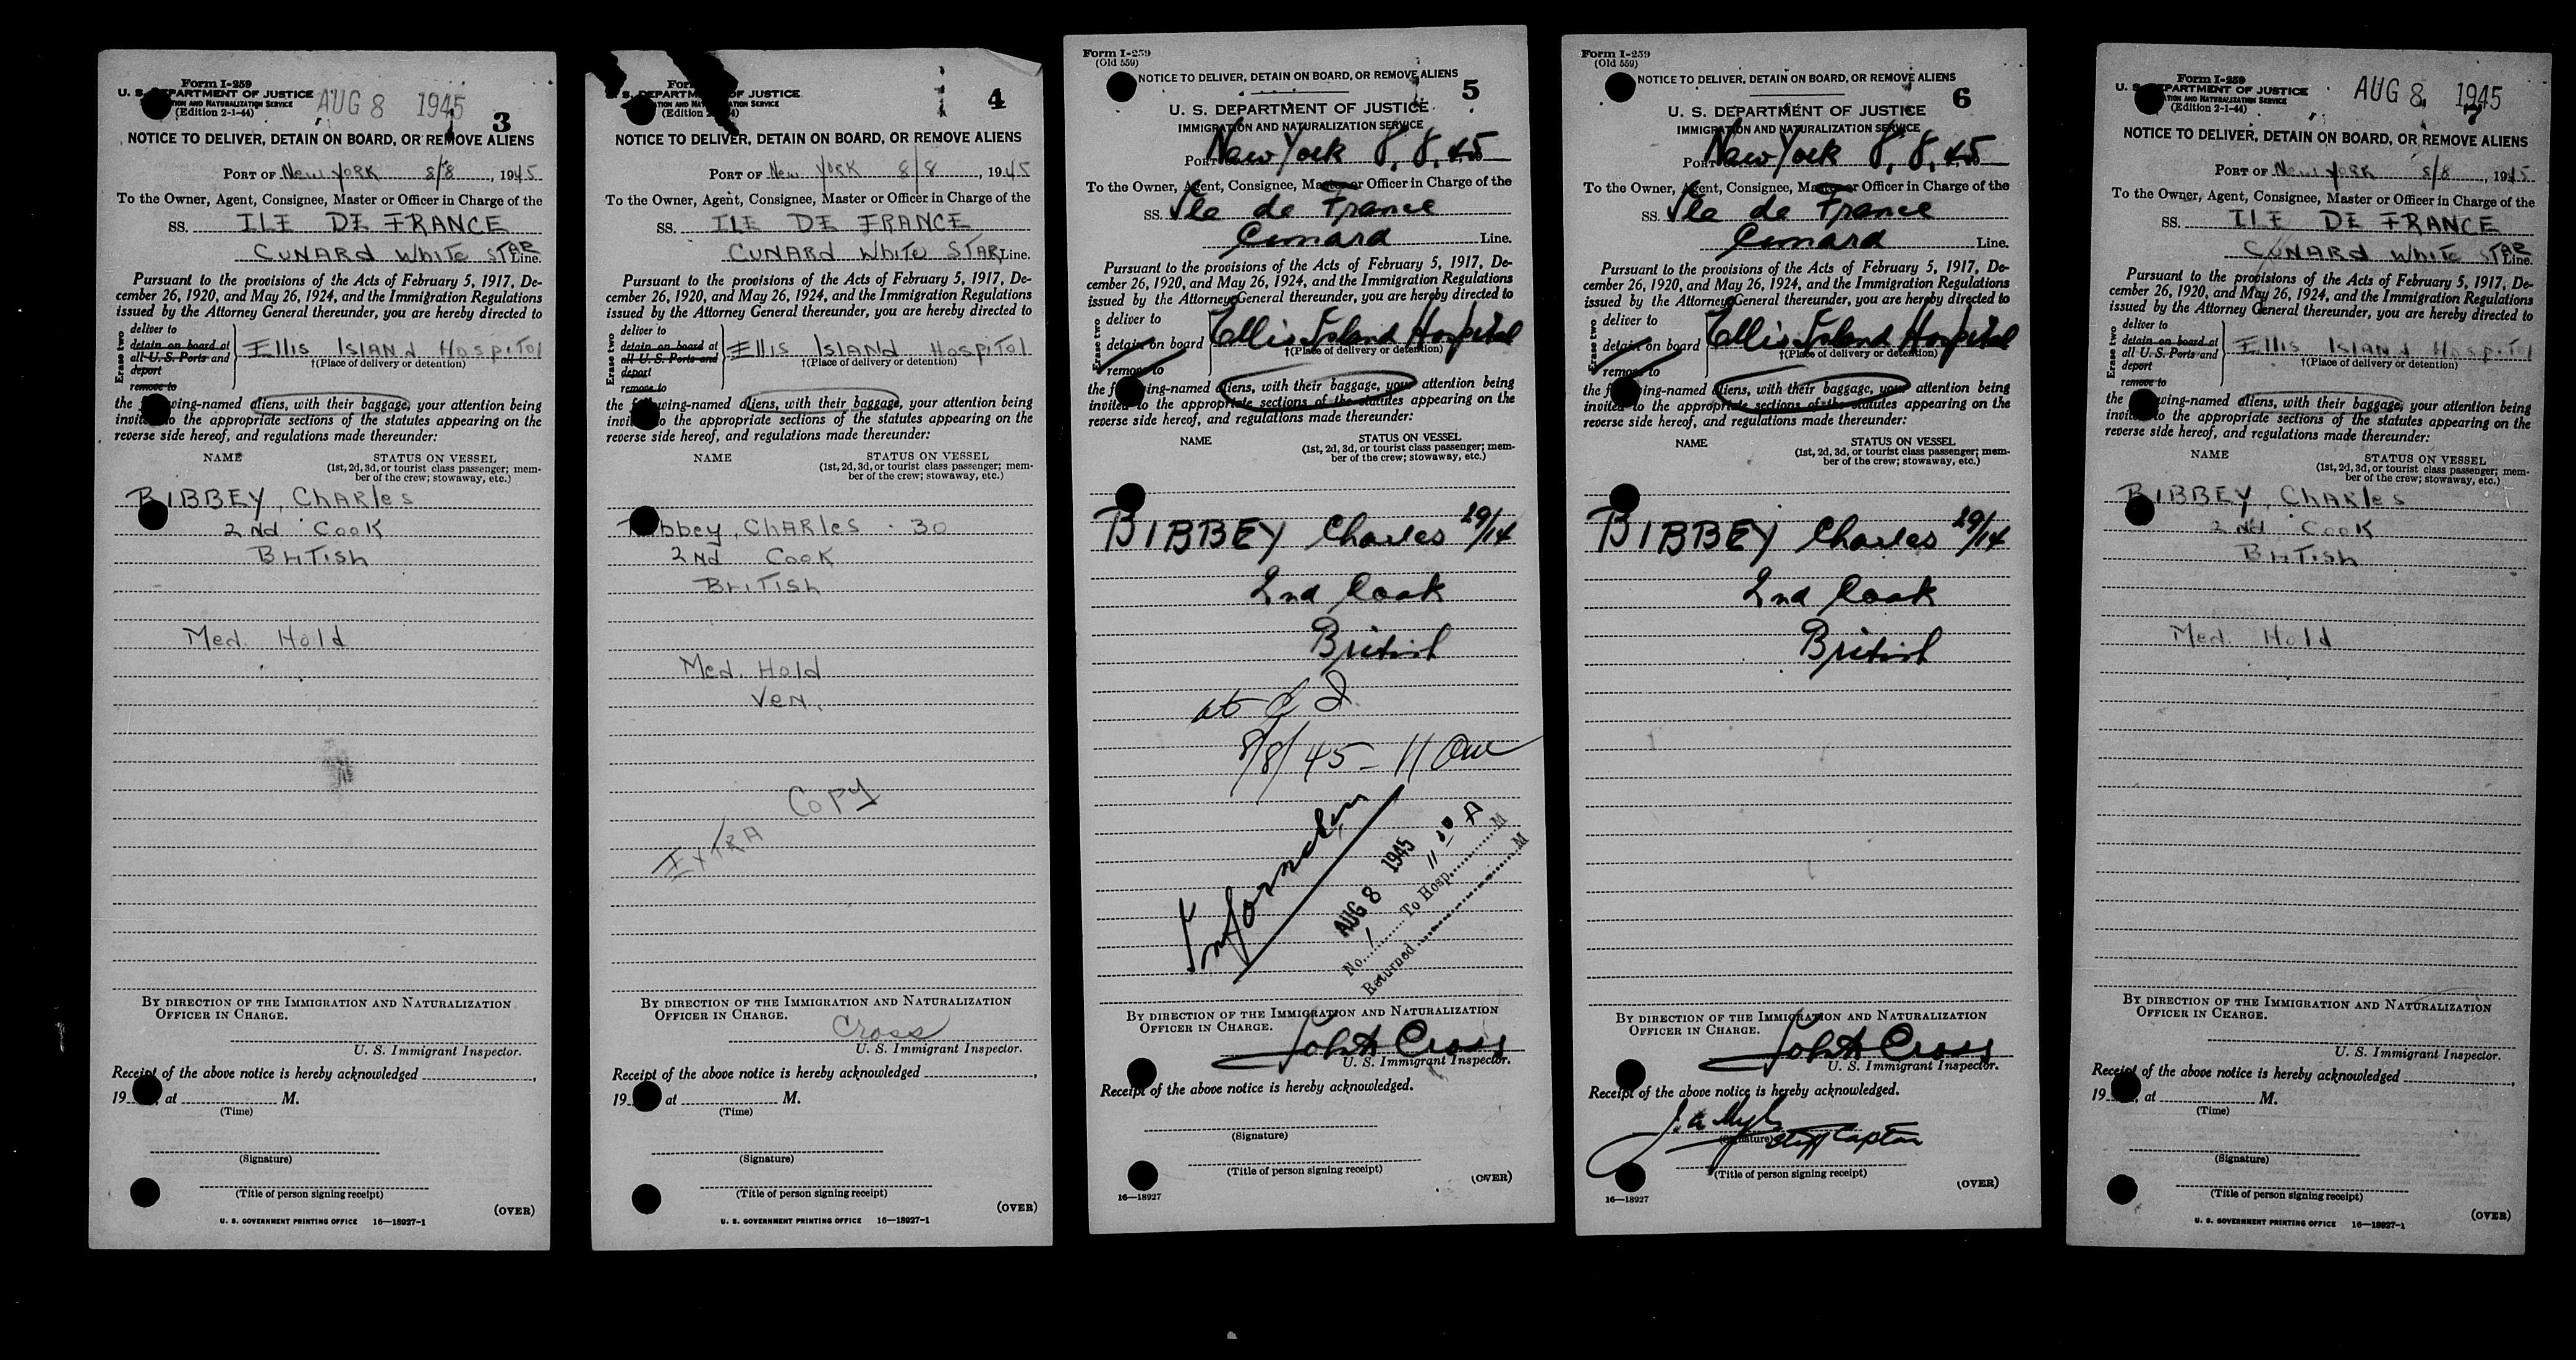 Form I-259
U. S. DEPARTMENT OF JUSTICE
TION AND NATURALIZATION SERVICE
(Edition 2-1-44)
AUG 8 1945
3
NOTICE TO DELIVER, DETAIN ON BOARD, OR REMOVE ALIENS
PORT OF New York 8/8, 1945
To the Owner, Agent, Consignee, Master or Officer in Charge of the
SS. ILE DE FRANCE
CUNARD White STAR Line.
Pursuant to the provisions of the Acts of February 5, 1917, De-
cember 26, 1920, and May 26, 1924, and the Immigration Regulations
issued by the Attorney General thereunder, you are hereby directed to
Erase two
deliver to
detain on board at
all U. S. Ports and
deport
remove to
Ellis Island Hospital
†(Place of delivery or detention)
the wing-named aliens, with their baggage, your attention being
invited to the appropriate sections of the statutes appearing on the
reverse side hereof, and regulations made thereunder:
NAME STATUS ON VESSEL
(1st, 2d, 3d, or tourist class passenger; mem-
ber of the crew; stowaway, etc.)
BIBBEY, Charles
2nd Cook
British
Med. Hold
BY DIRECTION OF THE IMMIGRATION AND NATURALIZATION
OFFICER IN CHARGE.
U. S. Immigrant Inspector.
Receipt of the above notice is hereby acknowledged
19 , at M.
(Time)
(Signature)
(Title of person signing receipt)
(OVER)
U. S. GOVERNMENT PRINTING OFFICE 16—18927-1
For
S. DEPARTM OF JUSTICE
TION AND NA ATION SERVICE
(Edition 4)
4
NOTICE TO DELIVER, DETAIN ON BOARD, OR REMOVE ALIENS
PORT OF New York 8/8, 1945
To the Owner, Agent, Consignee, Master or Officer in Charge of the
SS. ILE DE FRANCE
CUNARD White STAR Line.
Pursuant to the provisions of the Acts of February 5, 1917, De-
cember 26, 1920, and May 26, 1924, and the Immigration Regulations
issued by the Attorney General thereunder, you are hereby directed to
Erase two
deliver to
detain on board at
all U. S. Ports and
deport
remove to
Ellis Island Hospital
†(Place of delivery or detention)
the f wing-named aliens, with their baggage, your attention being
invited to the appropriate sections of the statutes appearing on the
reverse side hereof, and regulations made thereunder:
NAME STATUS ON VESSEL
(1st, 2d, 3d, or tourist class passenger; mem-
ber of the crew; stowaway, etc.)
Bibbey, Charles - 30
2nd Cook
British
Med. Hold
Ven.
EXTRA Copy
BY DIRECTION OF THE IMMIGRATION AND NATURALIZATION
OFFICER IN CHARGE.
Cross
U. S. Immigrant Inspector.
Receipt of the above notice is hereby acknowledged
19 at M.
(Time)
(Signature)
(Title of person signing receipt)
(OVER)
U. S. GOVERNMENT PRINTING OFFICE 16—18927-1
Form I-259
(Old 559)
NOTICE TO DELIVER, DETAIN ON BOARD, OR REMOVE ALIENS
5
U. S. DEPARTMENT OF JUSTICE
IMMIGRATION AND NATURALIZATION SERVICE
Port New York 8, 8, 45
To the Owner, Agent, Consignee, Master or Officer in Charge of the
SS. Ile de France
Cunard Line.
Pursuant to the provisions of the Acts of February 5, 1917, De-
cember 26, 1920, and May 26, 1924, and the Immigration Regulations
issued by the Attorney General thereunder, you are hereby directed to
Erase two
deliver to
detain on board
remove to
Ellis Island Hospital
†(Place of delivery or detention)
the f ing-named aliens, with their baggage, your attention being
invited to the appropriate sections of the statutes appearing on the
reverse side hereof, and regulations made thereunder:
NAME STATUS ON VESSEL
(1st, 2d, 3d, or tourist class passenger; mem-
ber of the crew; stowaway, etc.)
BIBBEY Charles 29/14
2nd Cook
British
at E I
8/8/45 - 11 am
Information
AUG 8 1945
No. 1 To Hosp. 11 30 A M
Returned M
BY DIRECTION OF THE IMMIGRATION AND NATURALIZATION
OFFICER IN CHARGE.
John A Cross
U. S. Immigrant Inspector.
Receipt of the above notice is hereby acknowledged.
(Signature)
(Title of person signing receipt)
16—18927
(OVER)
Form I-259
(Old 559)
NOTICE TO DELIVER, DETAIN ON BOARD, OR REMOVE ALIENS
6
U. S. DEPARTMENT OF JUSTICE
IMMIGRATION AND NATURALIZATION SERVICE
Port New York 8, 8, 45
To the Owner, Agent, Consignee, Master or Officer in Charge of the
SS. Ile de France
Cunard Line.
Pursuant to the provisions of the Acts of February 5, 1917, De-
cember 26, 1920, and May 26, 1924, and the Immigration Regulations
issued by the Attorney General thereunder, you are hereby directed to
Erase two
deliver to
detain on board
remove to
Ellis Island Hospital
†(Place of delivery or detention)
the f ing-named aliens, with their baggage, your attention being
invited to the appropriate sections of the statutes appearing on the
reverse side hereof, and regulations made thereunder:
NAME STATUS ON VESSEL
(1st, 2d, 3d, or tourist class passenger; mem-
ber of the crew; stowaway, etc.)
BIBBEY Charles 29/14
2nd Cook
British
BY DIRECTION OF THE IMMIGRATION AND NATURALIZATION
OFFICER IN CHARGE.
John A Cross
U. S. Immigrant Inspector.
Receipt of the above notice is hereby acknowledged.
(Signature) Staff Captain
(Title of person signing receipt)
16—18927
(OVER)
Form I-259
U. S. DEPARTMENT OF JUSTICE
TION AND NATURALIZATION SERVICE
(Edition 2-1-44)
AUG 8 1945
7
NOTICE TO DELIVER, DETAIN ON BOARD, OR REMOVE ALIENS
PORT OF New York 8/8, 1945
To the Owner, Agent, Consignee, Master or Officer in Charge of the
SS. ILE DE FRANCE
CUNARD White STAR Line.
Pursuant to the provisions of the Acts of February 5, 1917, De-
cember 26, 1920, and May 26, 1924, and the Immigration Regulations
issued by the Attorney General thereunder, you are hereby directed to
Erase two
deliver to
detain on board at
all U. S. Ports and
deport
remove to
Ellis Island Hospital
†(Place of delivery or detention)
the wing-named aliens, with their baggage, your attention being
invited to the appropriate sections of the statutes appearing on the
reverse side hereof, and regulations made thereunder:
NAME STATUS ON VESSEL
(1st, 2d, 3d, or tourist class passenger; mem-
ber of the crew; stowaway, etc.)
BIBBEY, Charles
2nd Cook
British
Med. Hold
BY DIRECTION OF THE IMMIGRATION AND NATURALIZATION
OFFICER IN CHARGE.
U. S. Immigrant Inspector.
Receipt of the above notice is hereby acknowledged
19 , at M.
(Time)
(Signature)
(Title of person signing receipt)
(OVER)
U. S. GOVERNMENT PRINTING OFFICE 16—18927-1